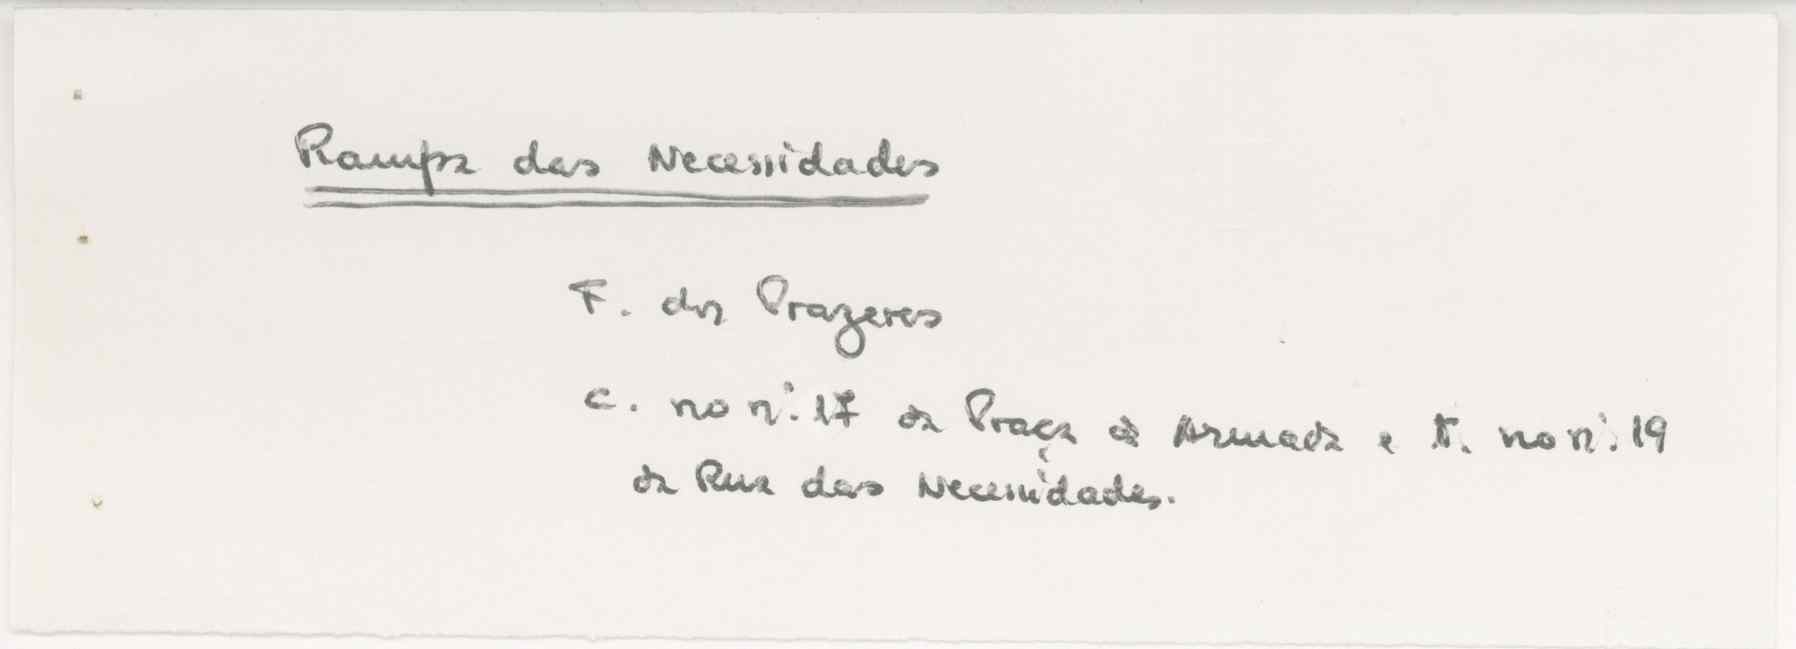 Rampa das Necessidades
F. dos Prazeres
C. no nº. 17 da Praça da Armada e t. no nº. 19
da Rua das Necessidades.